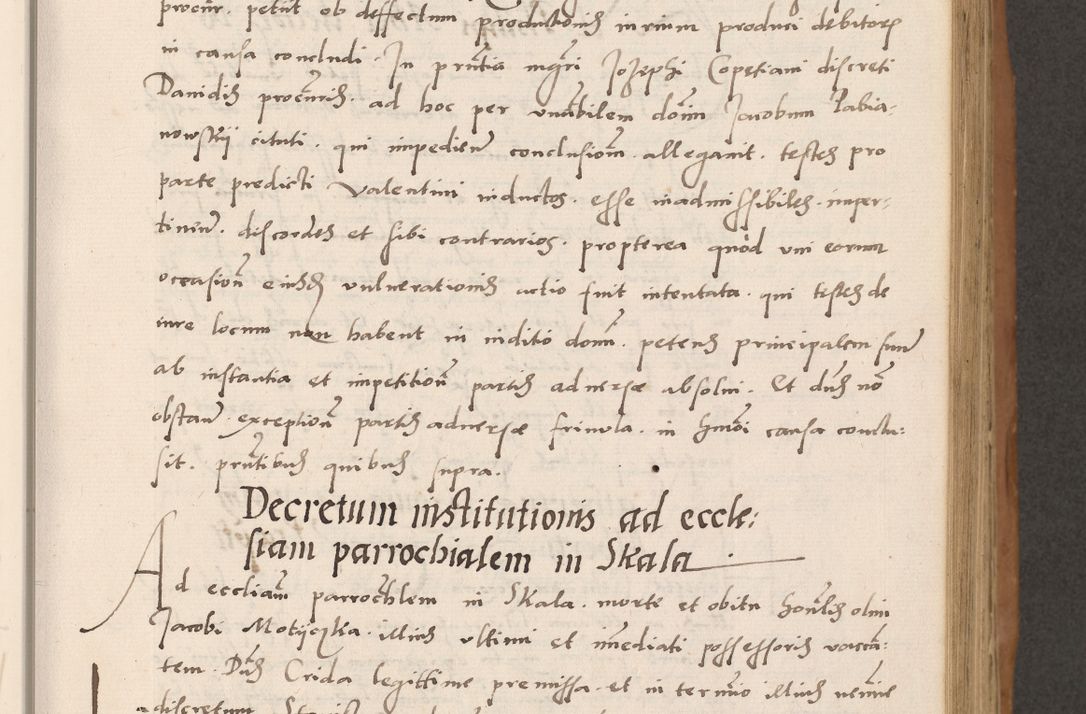 procur. petiit ob deffectum productionis in rium produci debitores
in causa concludi. In pntia mgri Jozephi Copetiani discreti
Danidis procuris. ad hoc per unabilem domi Jacobum Pabia-
nowskij citati. qui impediens conclusiom. allegavit. testes pro
parte predicti Valentini inductos. esse inadmissibiles. imper-
tinen. discordes et sibi contrarios. propterea quod uni eorum
occasion eiusd vulnerationis actio fuit intentata. qui testes de
iure locum non habent in inditio domi. petens principalem suum
ab instantia et impetition partis adverse absolvi. Et dns no
obstan. exception partis adverse frivola. in hmoi causa conclu:
sit. pntibus quibus supra.
Decretum institutionis ad eccle:
siam parrochialem in Skala.
Ad eccliam parrochlem in Skala. morte et obitu honlis olim
Jacobi Motijczka. illius ultimi et immediati possessoris vacan:
tem. Dns Crida legittime premissa. et in termio illius
discretum